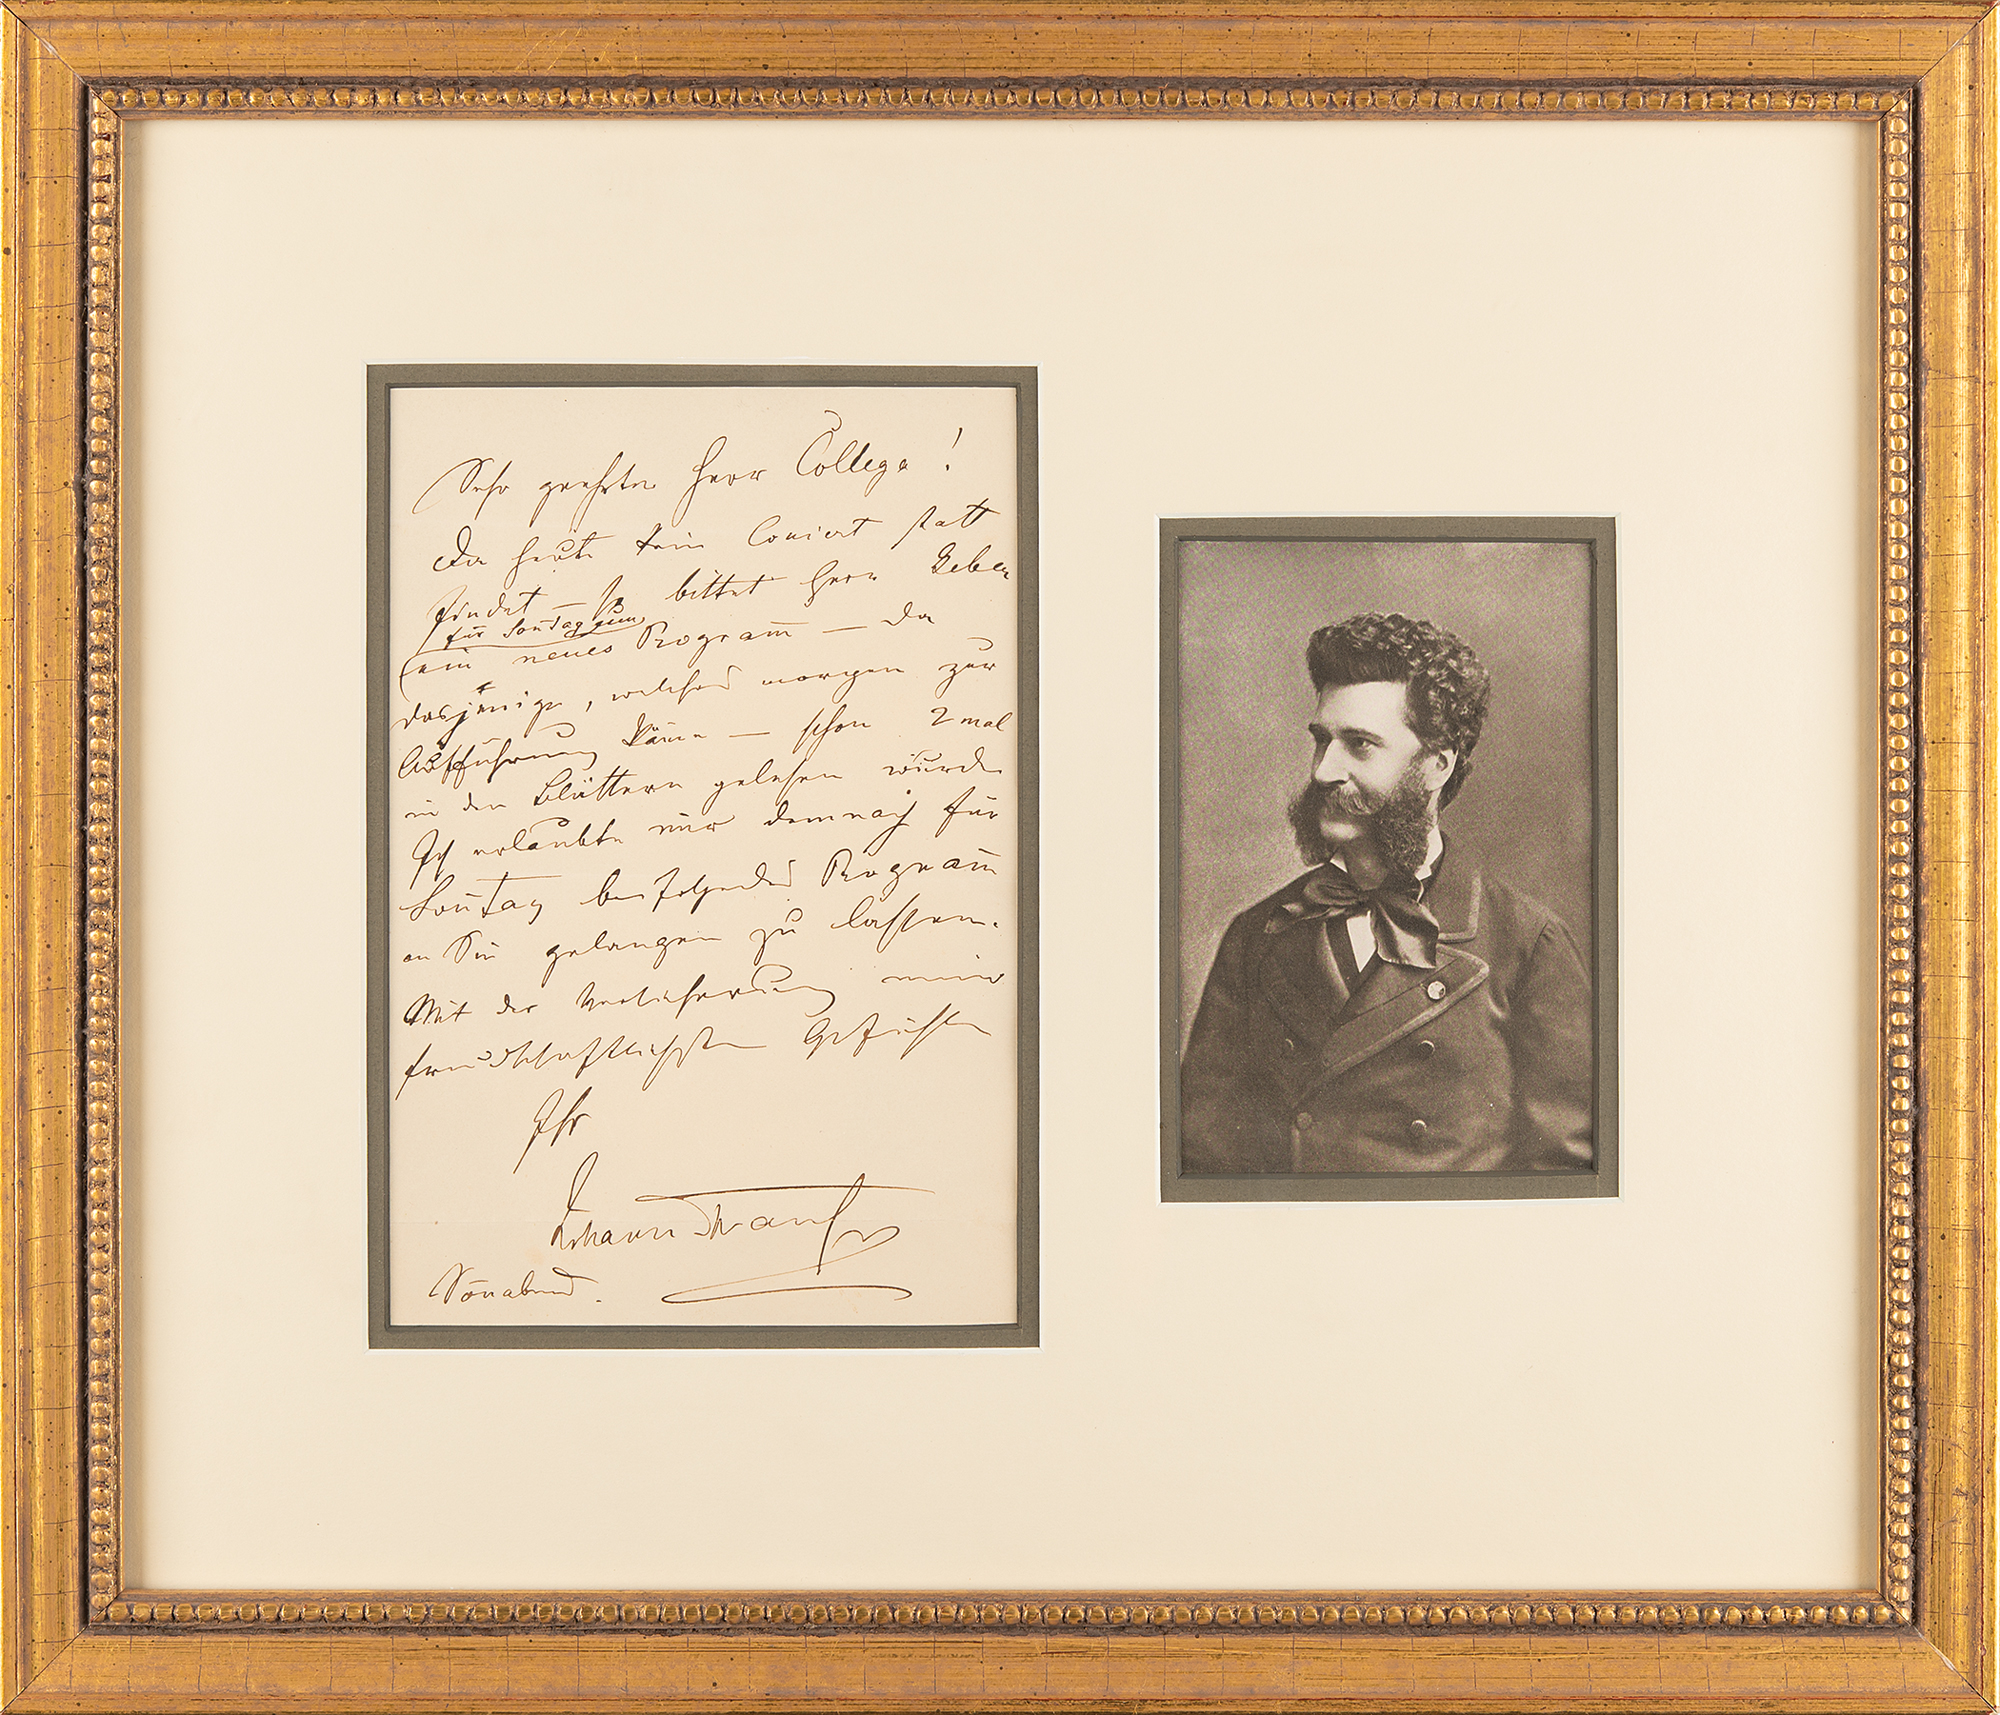 Sehr geehrter Herr College!
Da heute kein Concert statt
findet – so bittet Herr
für Sontag zum
ein neues Program̅ – da
dasjenige, welches morgen zur
Aufführung käme – schon 2 mal
in den Blättern gelesen wurde
Ich erlaubte mir demnach für
Son̅tag beifolgendes Program̅
an Sie gelangen zu lassen.
Mit der Versicherung meiner
freundschaftlichsten Gefühle
Ihr
Johann Strauss
Son̅abend.